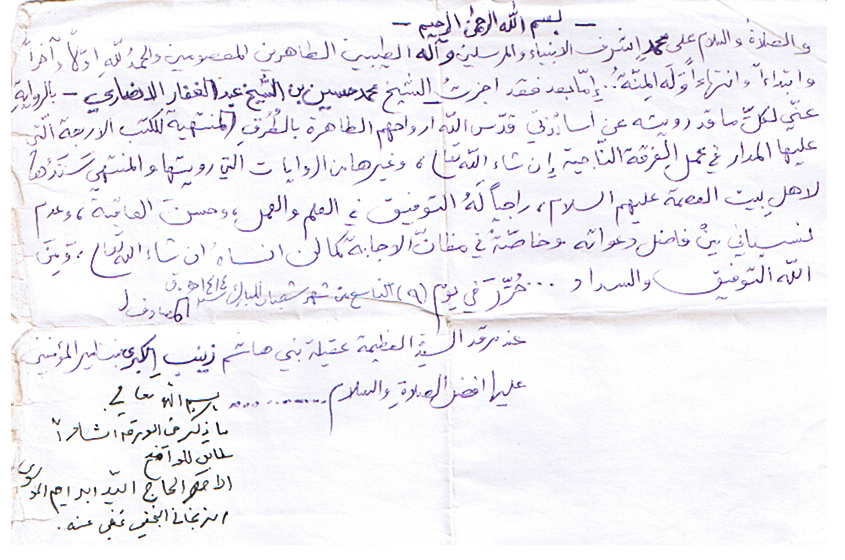 - بسم الله الرحمن الرحيم -
والصلاة والسلام على محمد اشرف الانبياء والمرسلين وآله الطيبين الطاهرين المعصومين والحمد لله اولاً وآخراً
وابتداءاً وانتهاءاً وله المنّة. إمّا بعد فقد اجزتُ الشيخ محمد حسين بن الشيخ عبد الغفار الانصاري - بالرواية
عنّي لكلّ ما قد رويته عن اساتذتي قدّس الله ارواحهم الطاهرة بالطُرق المنتهية للكتب الاربعة الّتي
عليها المدار في عمل الفرقة النّاجية إن شاء الله تعالى، وغيرها من الروايات التي رويتها والمنتهي سَندُها
لاهل بيت العصمة عليهم السلام، راجياً لهُ التوفيق في العلم والعمل، وحسن العاقبة، وعدم
نسياني مِنْ فاضل دعواته وخاصّةً في مظانّ الاجابة كما لن انساهُ ان شاء الله تعالى، ومِنَ
الله التوفيق والسداد ... حُرِّرَ في يوم (٩) التاسع من شهر شعبان المبارك سنة ١٤١٤ هـ.ق
المصادف لـ
عند مرقد السيّدة العظيمة عقيلة بني هاشم زينب الكبرى بنت امير المؤمنين
عليها افضل الصلاة والسلام ..........
بسم الله تعالى
ما ذكر في الورقة
طابق للواقع
الاحقر الحاج السّيد ابراهيم الموسوي
الزنجاني النجفي عُفي عنه.